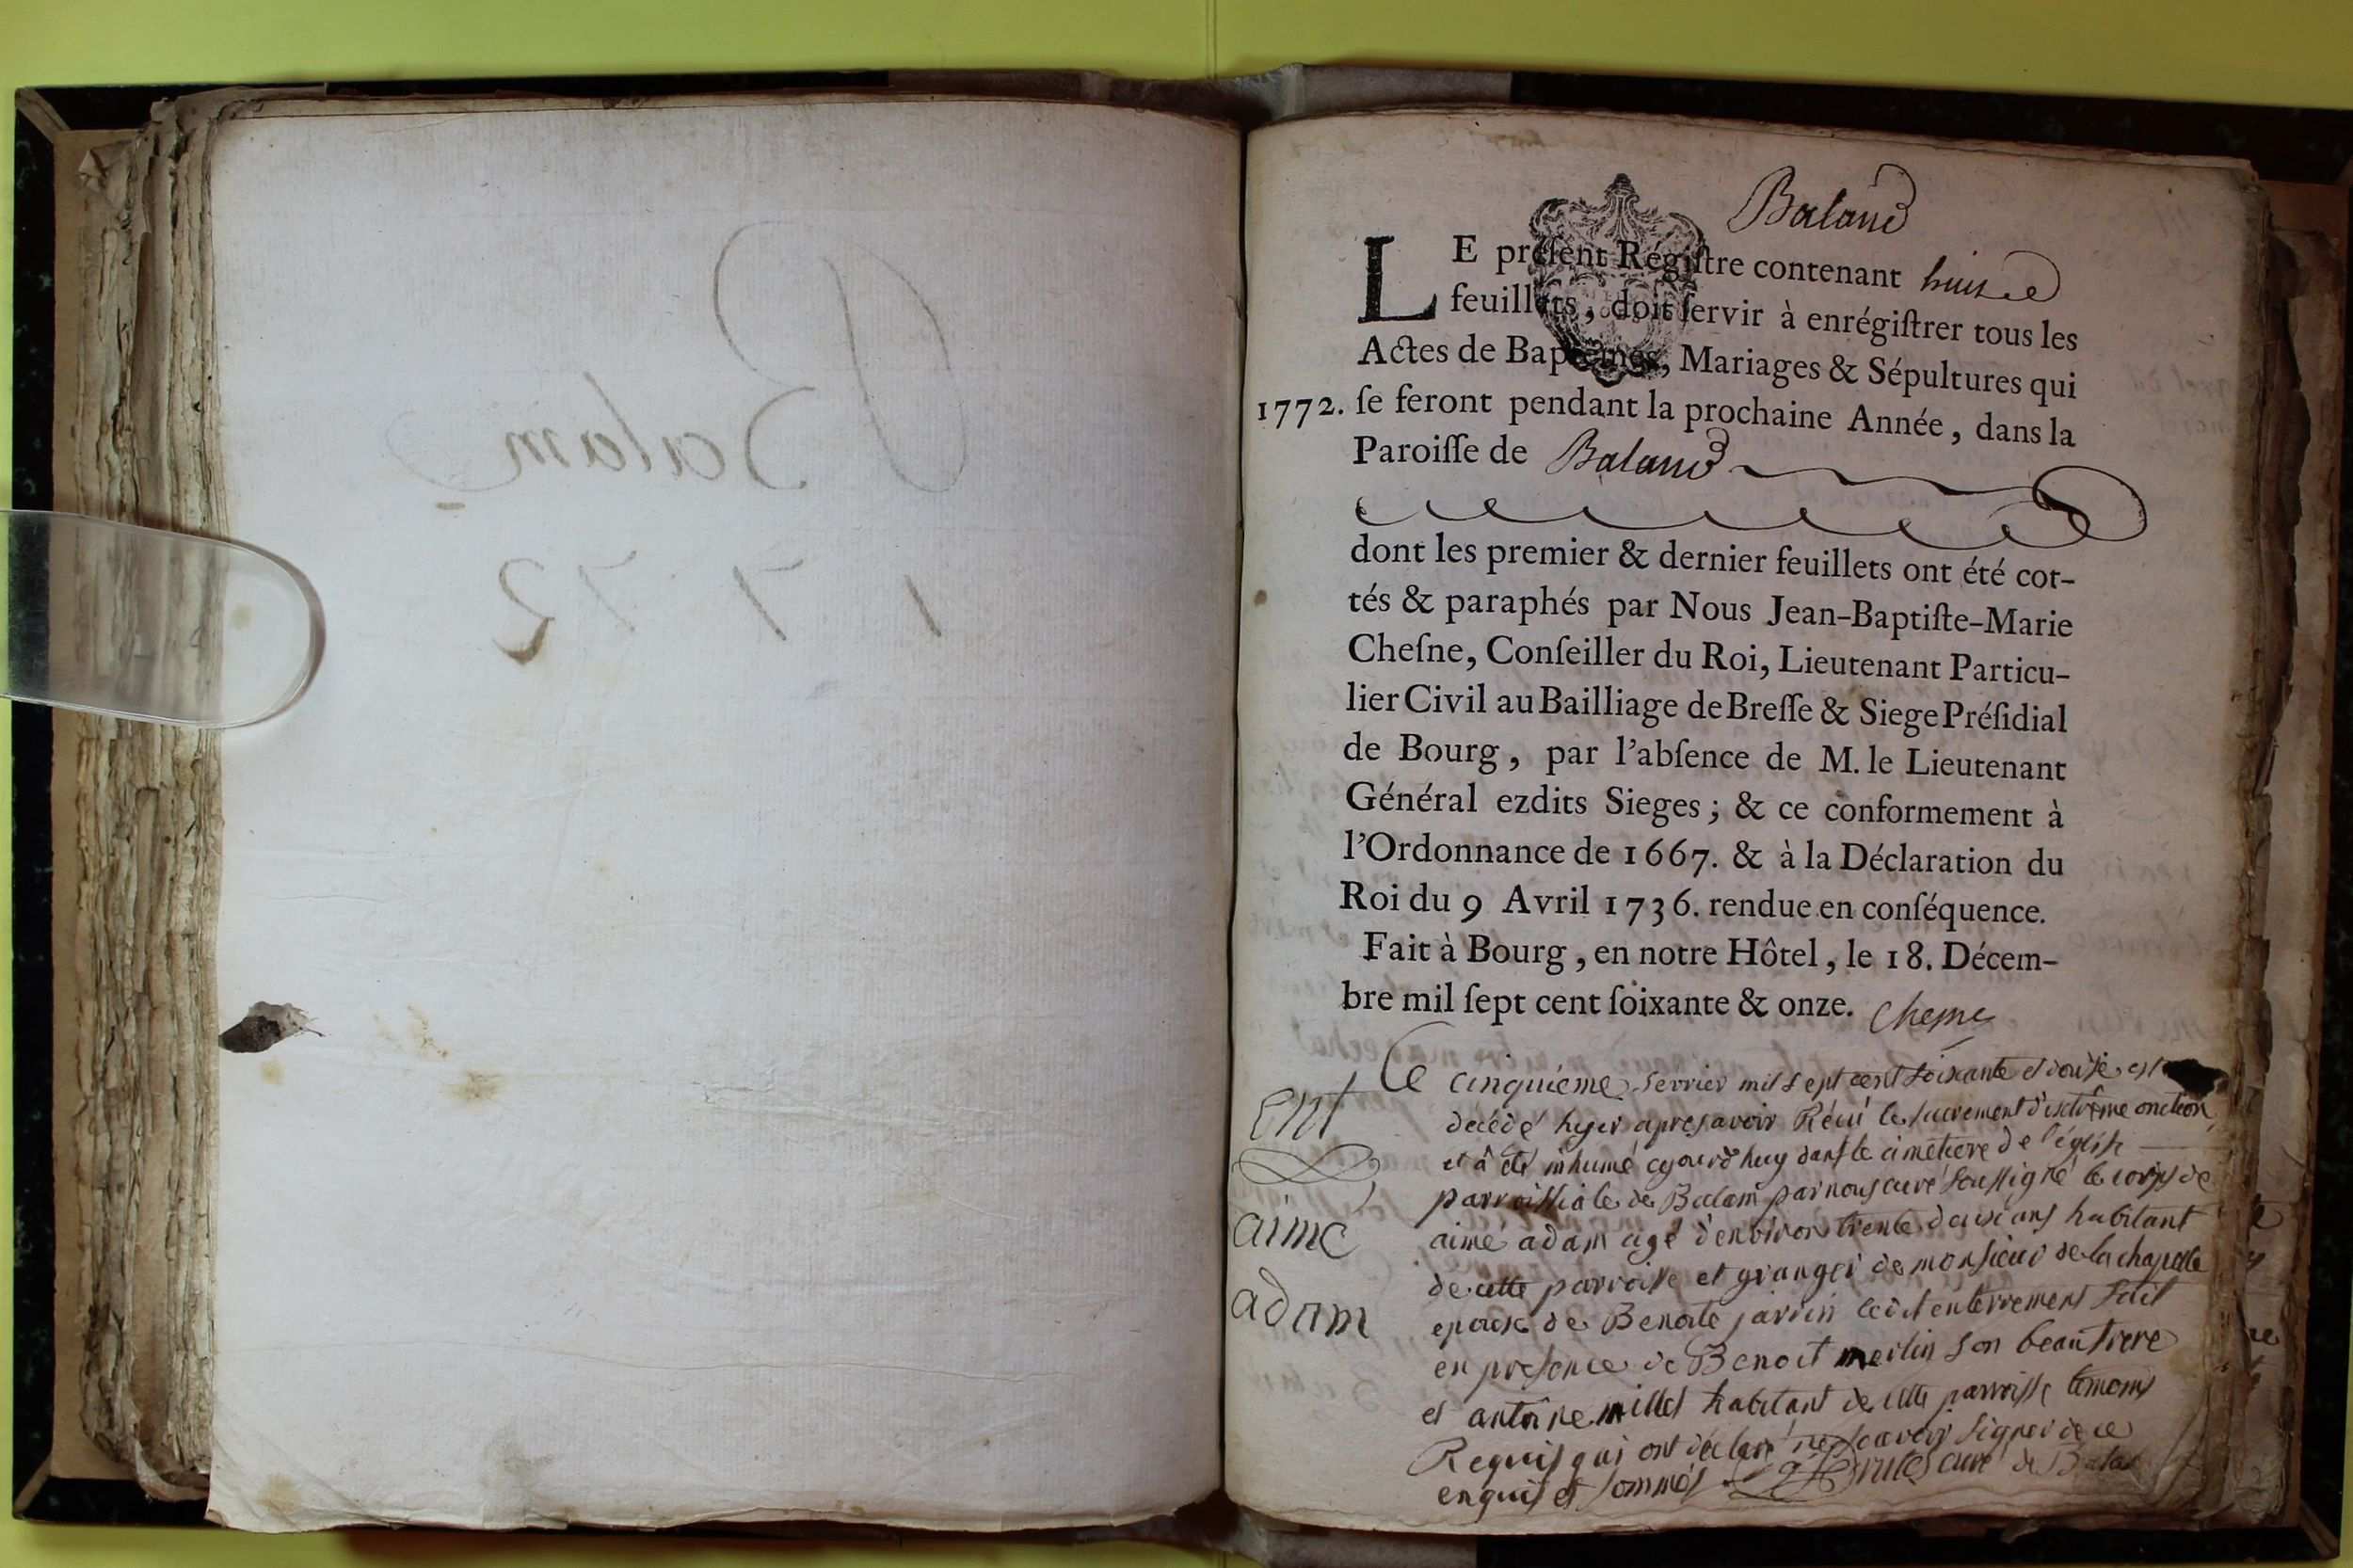 Balam
1772
Baland
LE préſent Régiſtre contenant huit
feuillets, doit ſervir à enrégiſtrer tous les
Actes de Baptêmes, Mariages & Sépultures qui
1772. ſe feront pendant la prochaine Année, dans la
Paroiſſe de Baland
dont les premier & dernier feuillets ont été cot-
tés & paraphés par Nous Jean-Baptiſte-Marie
Cheſne, Conſeiller du Roi, Lieutenant Particu-
lier Civil au Bailliage de Breſſe & Siege Préſidial
de Bourg, par l'abſence de M. le Lieutenant
Général ezdits Sieges; & ce conformement à
l'Ordonnance de 1667. & à la Déclaration du
Roi du 9 Avril 1736. rendue en conſéquence.
Fait à Bourg, en notre Hôtel, le 18. Décem-
bre mil ſept cent ſoixante & onze. Chesne
Ent
aimé
adam
Le cinquieme fevrier mil sept cent soixante et douse est
decédé hyer apres avoir Récu le sacrement d'extrême onction
et â été inhumé cejourd'huy dans le cimetiere de l'église
parroissiale de Balam par nous curé soussigné le corps de
aimé adam agé d'environ trente deux ans habitant
de cette parroisse et granger de monsieur de la chapelle
epoux de Benoite jardin ledit enterrement fait
en presence de Benoit merlin son beaufrere
et antoine millet habitant de cette parroisse temoins
Requis qui ont déclaré ne scavoir signer de ce
enquis et sommés curé de Balam